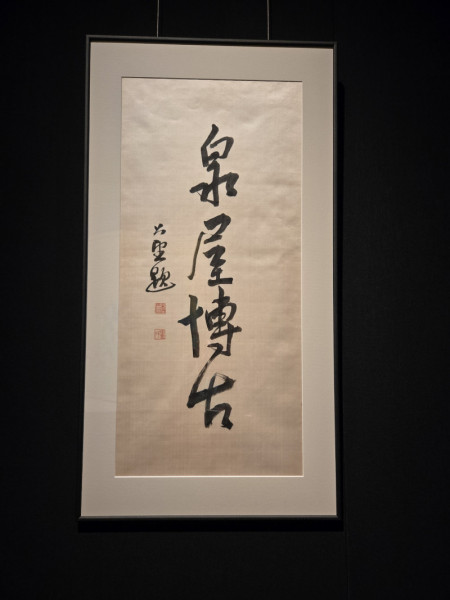 泉屋博古
六聖題